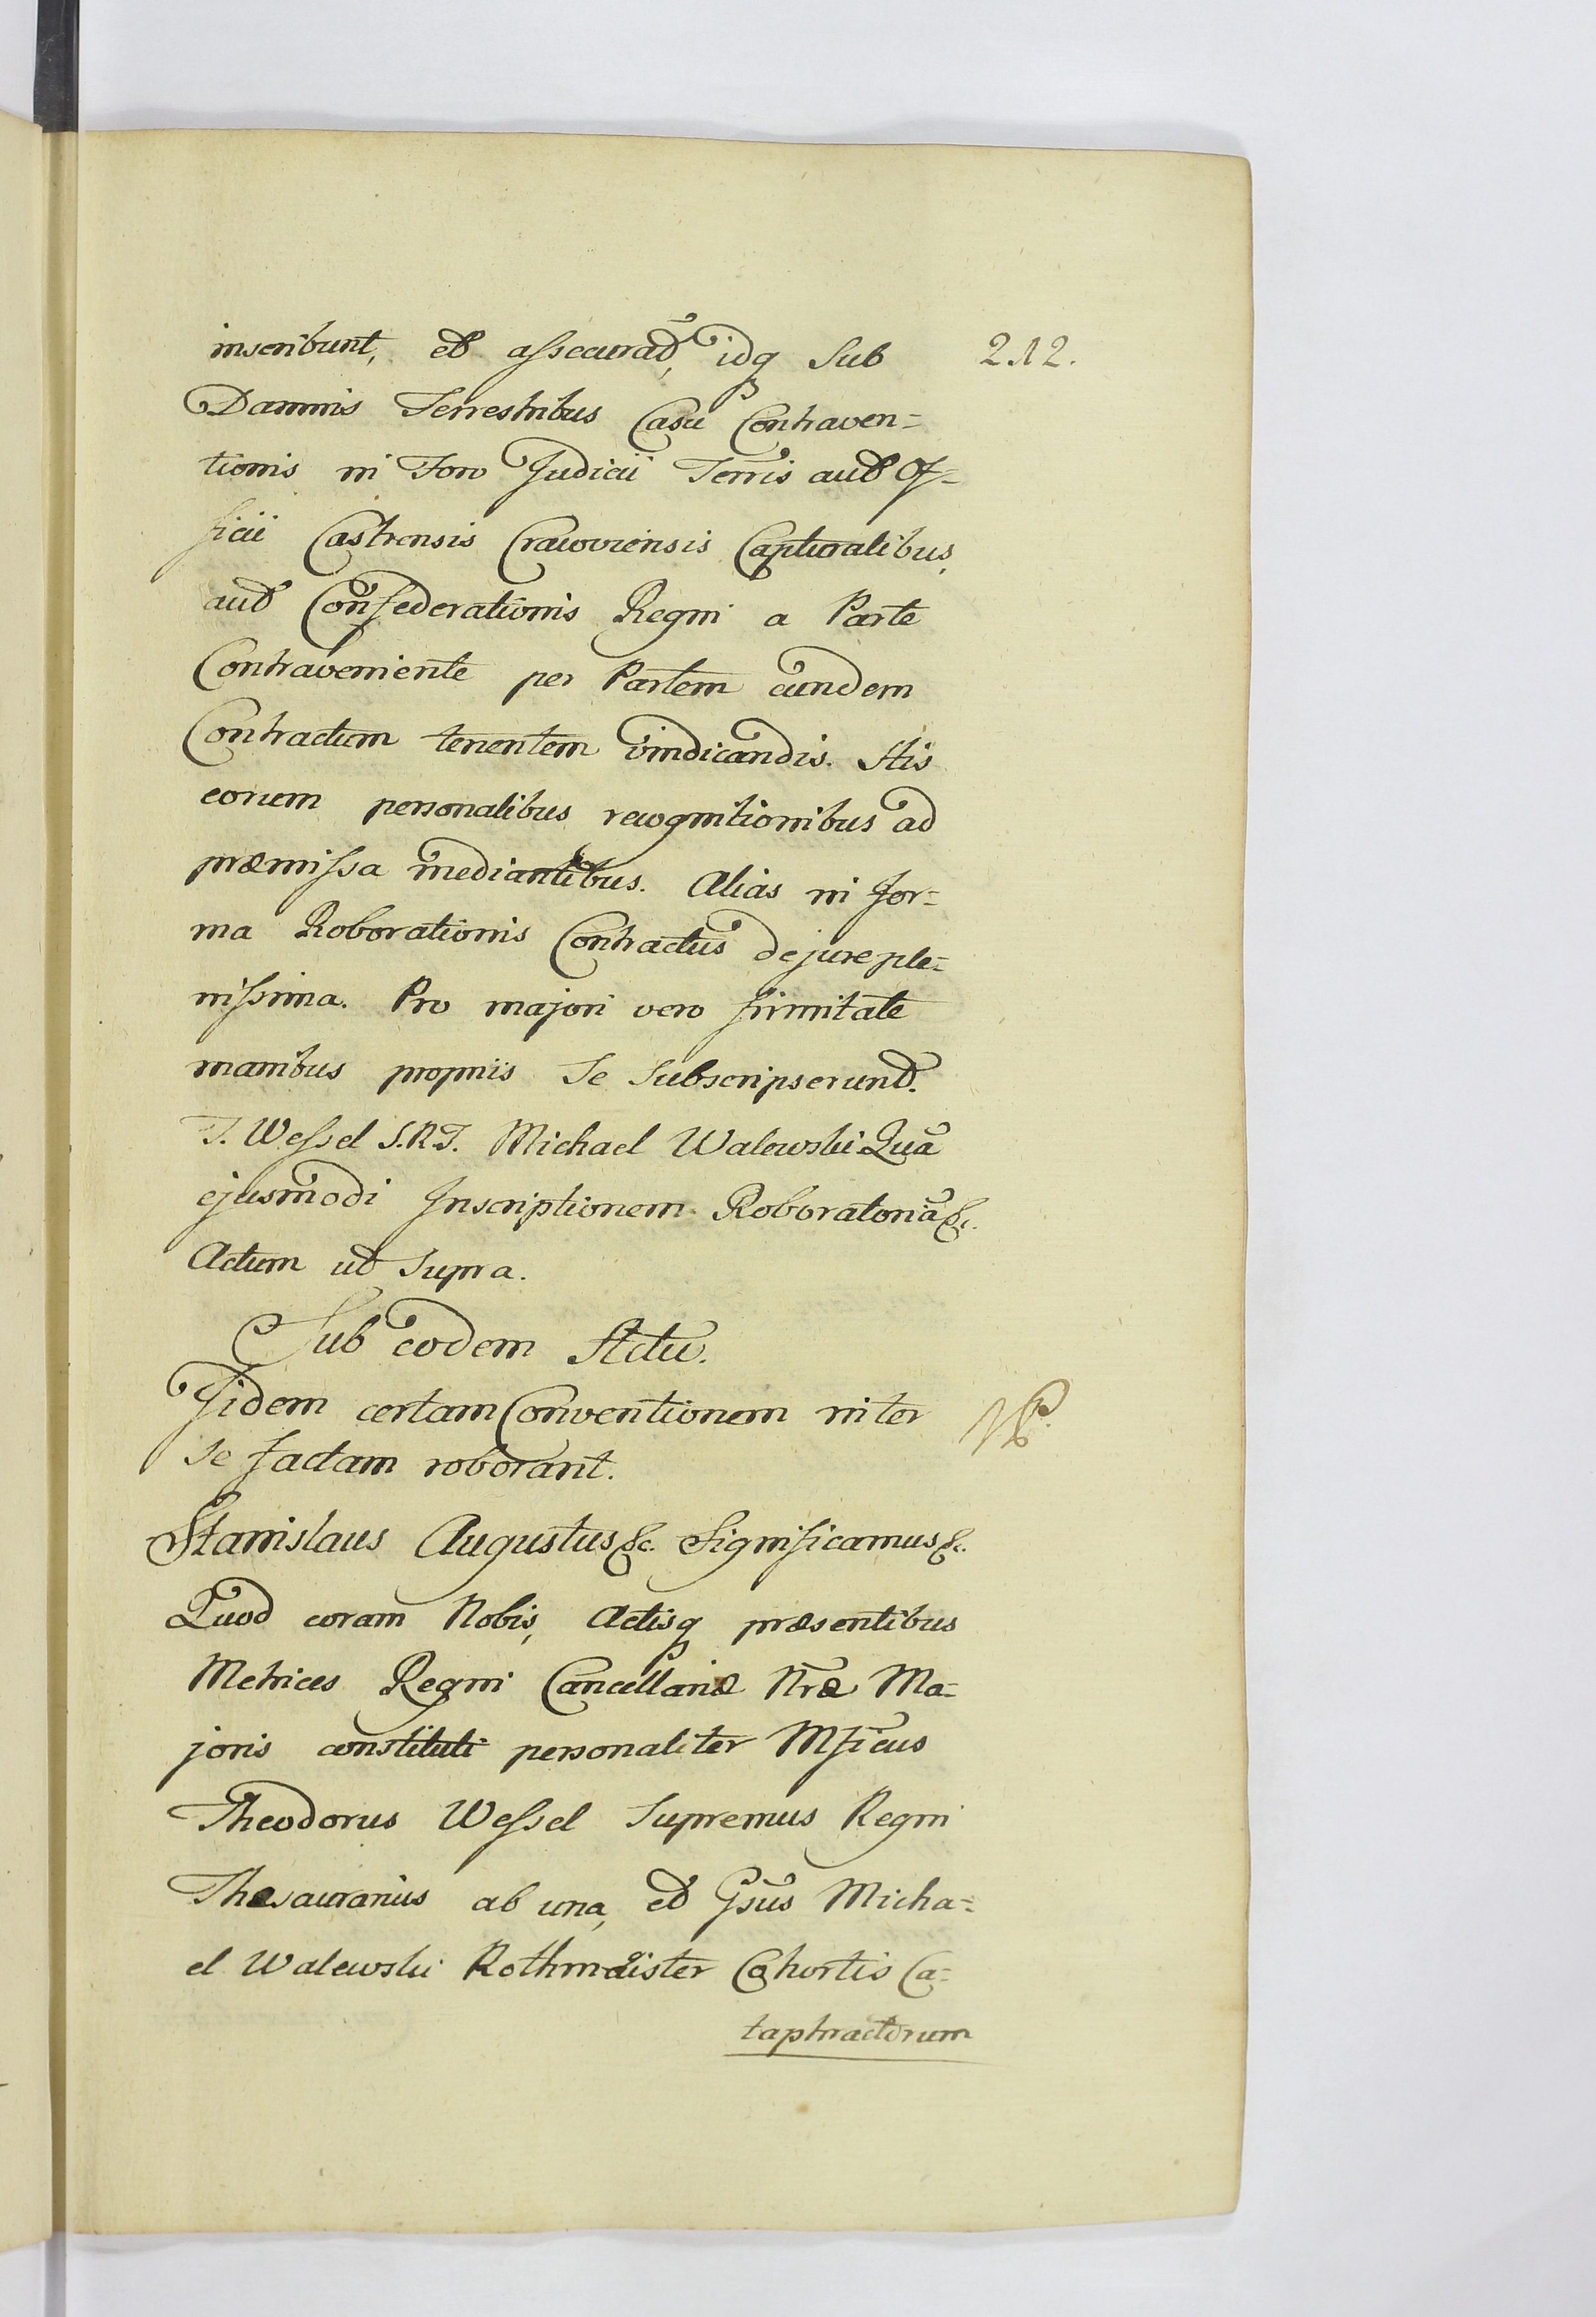 inscribunt, et assecurat, idq́ Sub
212.
Damnis Terrestribus Casu Contraven=
tionis in Foro Judicii Terris aut Of=
ficii Castrensis Cracoviensis Capturalibus,
aut Confederationis Regni a Parte
Contraveniente per Partem eundem
Contractum tenentem vindicandis. His
eorum personalibus recognitionibus ad
præmissa mediantibus. Alias in for=
ma Roborationis Contractus de jure ple=
nissima. Pro majori vero firmitate
manibus propriis Se Subscripserunt.
T. Wessel S.R.T. Michael Walewski Quā
ejusmodi Inscriptionem Roboratoriā &c.
Actum ut Supra.
Sub eodem Actu.
Iidem certam Conventionem inter
Se factam roborant.
Stanislaus Augustus &c. Significamus &c.
Quod coram Nobis, Actisq́ præsentibus
Metrices Regni Cancellariæ Nr̄æ Ma=
joris constituti personaliter Mficus
Theodorus Wessel Supremus Regni
Thesaurarius ab una, et Gsus Micha=
el Walewski Rothmaister Cohortis Ca=
taphractorum